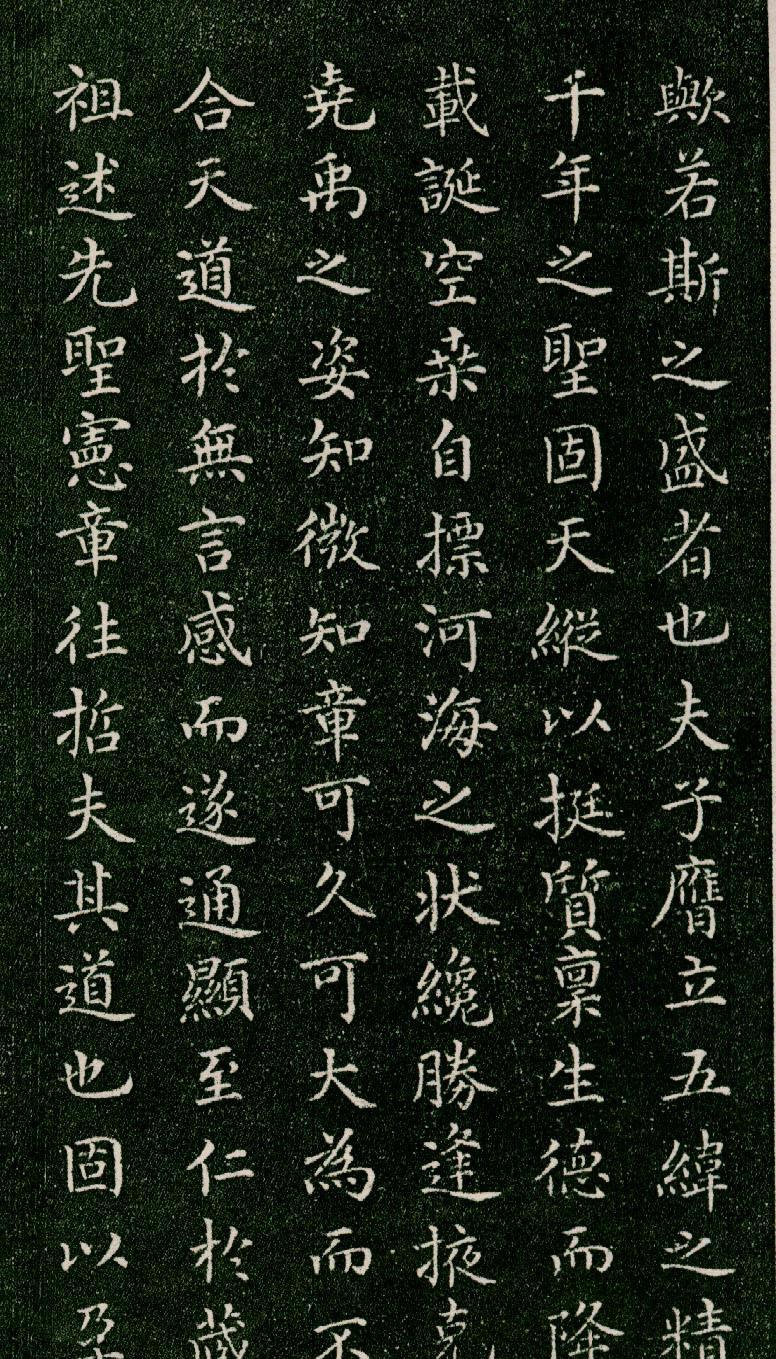 歟若斯之盛者也夫子膺立五緯之精
千年之聖固天縱以挺質稟生德而降
載誕空桑自標河海之狀纔勝逢掖克
堯禹之姿知微知章可久可大為而不
合天道於無言感而遂通顯至仁於藏
祖述先聖憲章往哲夫其道也固以孕